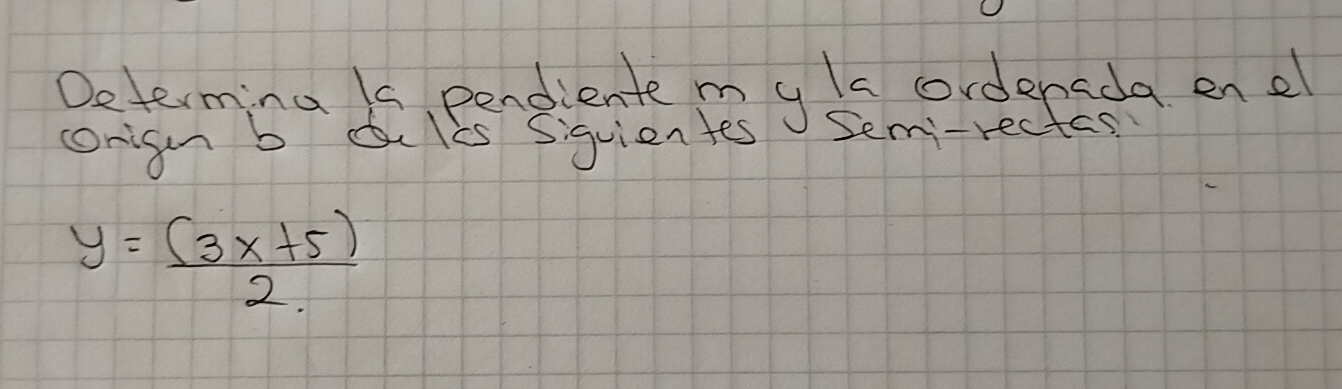 Determina la pendiente m y la ordenada en el
origen b de las siguientes semi-rectas:
y = (3x+5)
2.